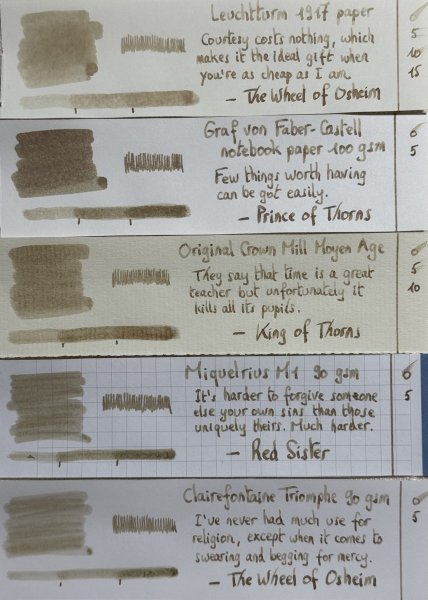 Leuchtturm 1917 paper
Courtesy costs nothing, which
makes it the ideal gift when
you're as cheap as I am.
- The Wheel of Osheim
0
5
10
15
Graf von Faber-Castell
notebook paper 100 gsm
Few things worth having
can be got easily.
- Prince of Thorns
0
5
Original Crown Mill Moyen Age
They say that time is a great
teacher but unfortunately it
kills all its pupils.
- King of Thorns
0
5
10
Miquelrius M1 90 gsm
It's harder to forgive someone
else your own sins than those
uniquely theirs. Much harder.
- Red Sister
0
5
Clairefontaine Triomphe 90 gsm
I've never had much use for
religion, except when it comes to
swearing and begging for mercy.
- The Wheel of Osheim
0
5